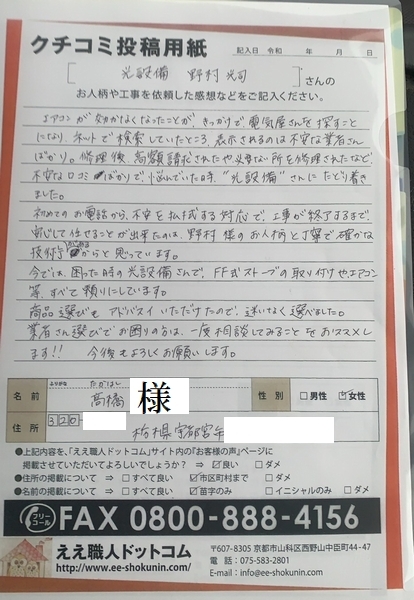 クチコミ投稿用紙
記入日 令和 年 月 日
光設備 野村光司 さんの
お人柄や工事を依頼した感想などをご記入ください。
エアコンが効かなくなったことが、きっかけで電気屋さんを探すこと
になり、ネットで検索していたところ、表示されるのは不安な業者さん
ばかり。修理後、高額請求されたや、必要ない所を修理されたなど、
不安な口コミばかりで、悩んでいた時、"光設備"さんにたどり着き
ました。
初めてのお電話から、不安を払拭する対応で、工事が終了するまで、
安心して任せることが出来たのは、野村様のお人柄と丁寧で確かな
技術力だからと思っています。
今では、困った時の光設備さんで、FF式ストーブの取り付けやエアコン
等、すべて頼りにしています。
商品選びもアドバイスいただけたので、迷いなく選べました。
業者さん選びでお困りの方は、一度相談してみることをおススメし
ます!! 今後もよろしくお願いします。
名前 ふりがな たかはし 高橋 様 性別 □男性 ☑女性
住所 320- 栃木県宇都宮市
●上記内容を、「ええ職人ドットコム」サイト内の『お客様の声』ページに
掲載させていただいてよろしいでしょうか? ⇒ ☑良い □ダメ
●住所の掲載について ⇒ □すべて良い ☑市区町村まで □ダメ
●名前の掲載について ⇒ □すべて良い ☑苗字のみ □イニシャルのみ □ダメ
フリーコール FAX 0800-888-4156
ええ職人ドットコム
http://www.ee-shokunin.com/
〒607-8305 京都市山科区西野山中臣町44-47
電話:075-583-2801
E-mail:info@ee-shokunin.com